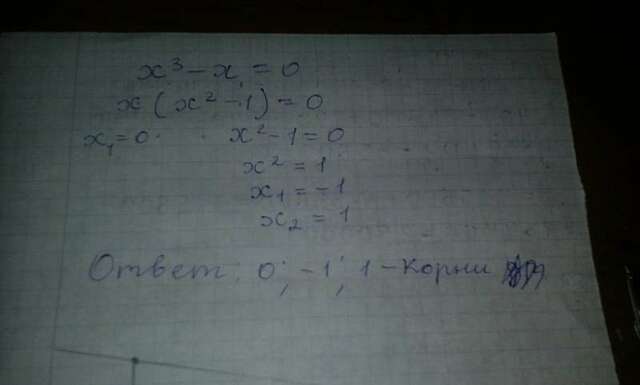 x³ - x = 0
x (x² - 1) = 0
x₁ = 0 x² - 1 = 0
x² = 1
x₁ = -1
x₂ = 1
Ответ: 0; -1; 1 - корни